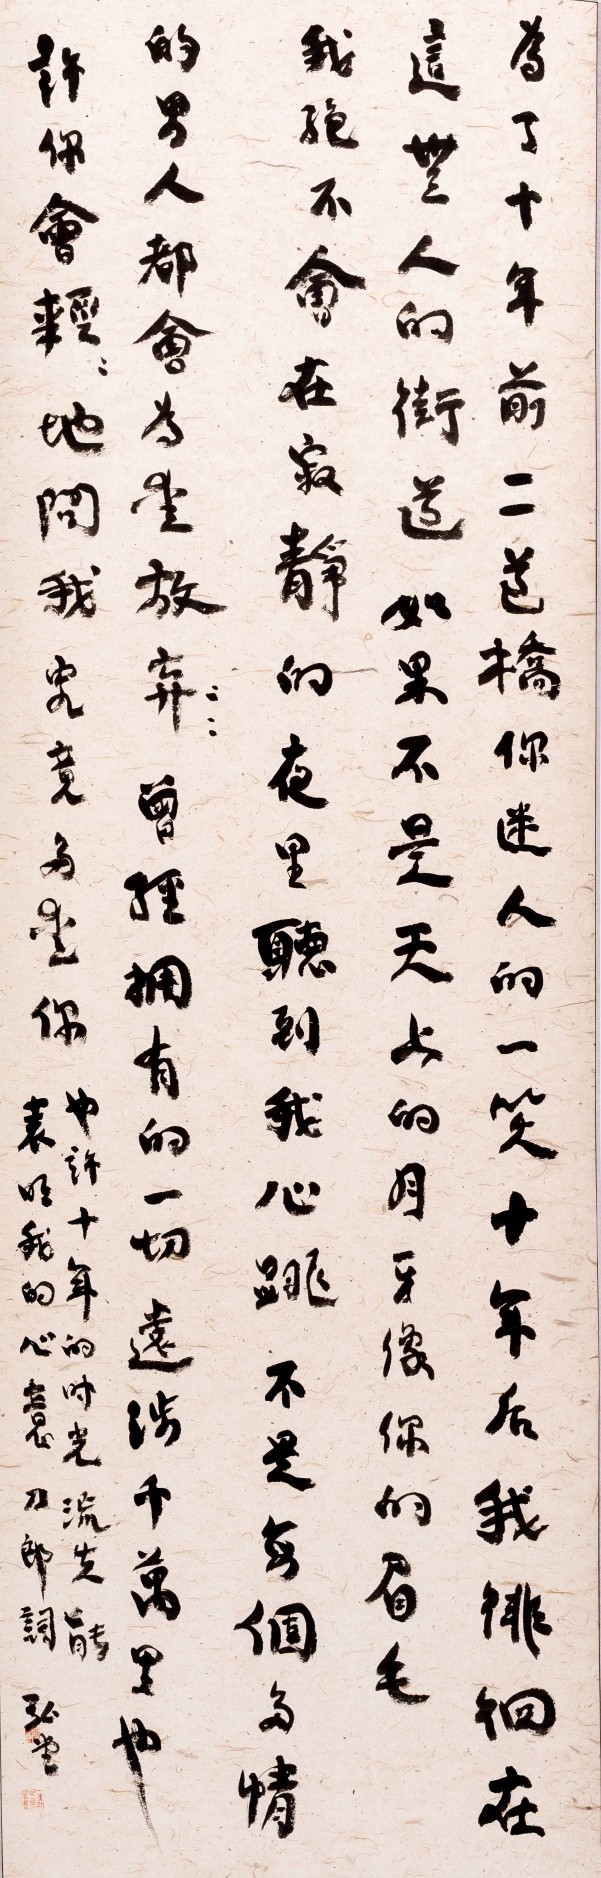 為了十年前二道橋你迷人的一笑十年后我徘徊在
這無人的街道如果不是天上的月牙像你的眉毛
我絕不會在寂靜的夜里聽到我心跳不是每個多情
的男人都會為愛放弃〻〻曾經拥有的一切遠涉千萬里也
許你會輕〻地問我究竟多愛你
也許十年的时光流失能
表明我的心意刀郎詞